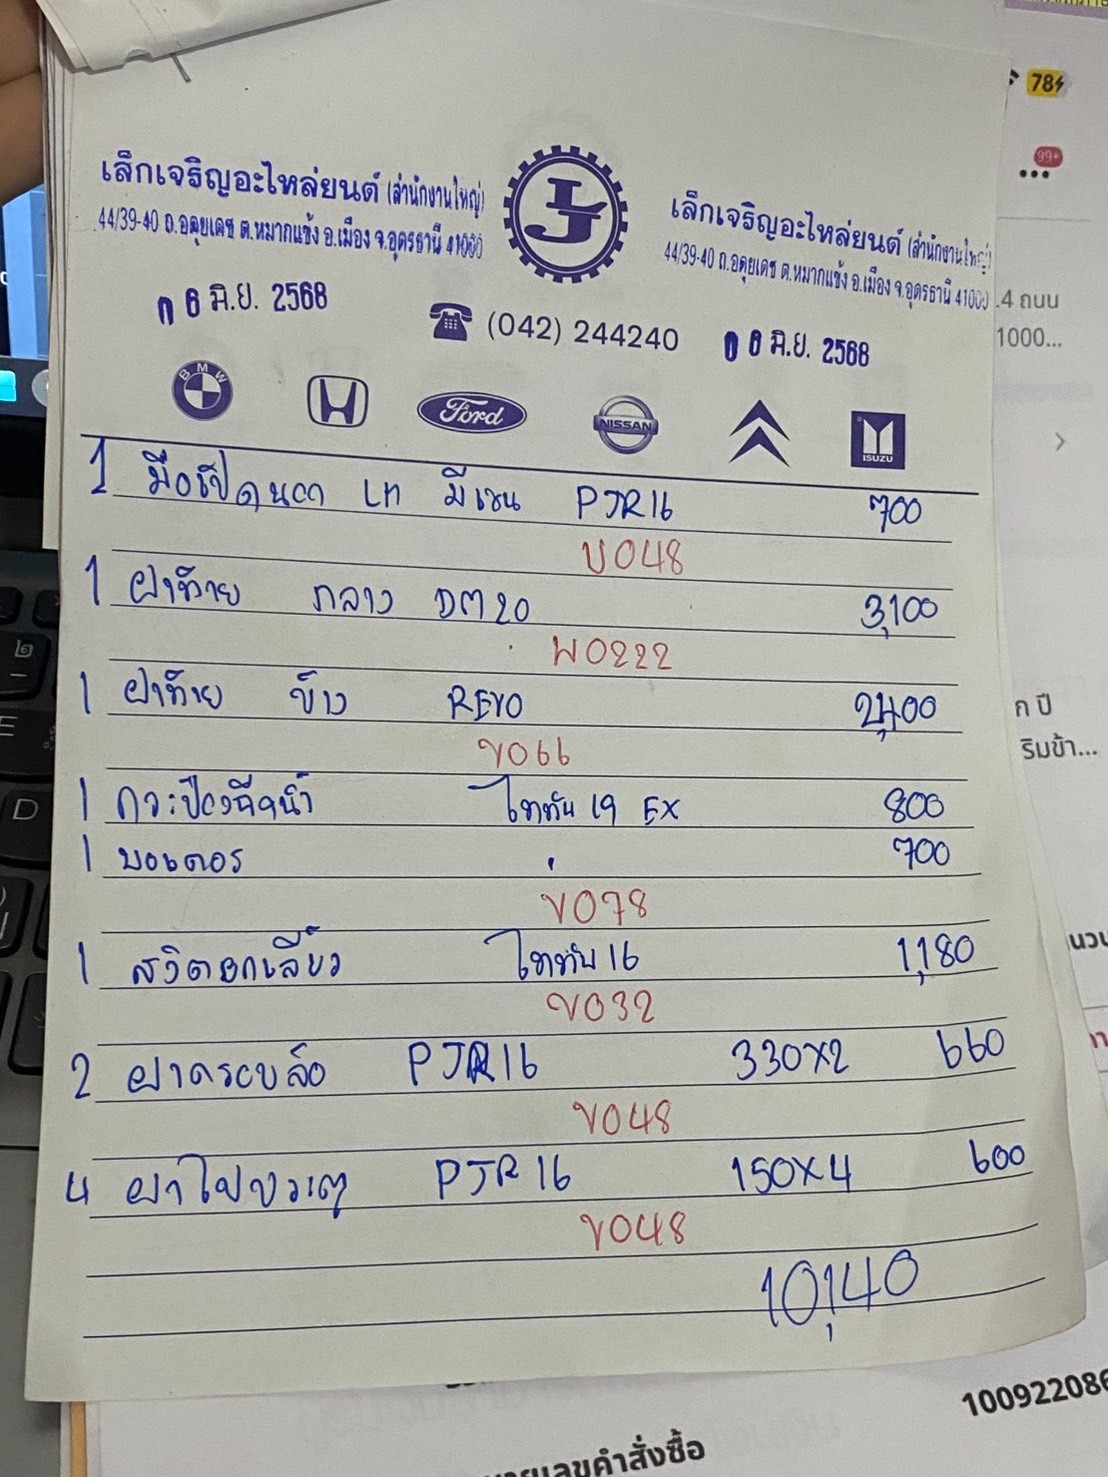 78
99+
เล็กเจริญอะไหล่ยนต์ (สำนักงานใหญ่)
44/39-40 ถ.อดุยเดช ต.หมากแข้ง อ.เมือง จ.อุดรธานี 41000
LJ
เล็กเจริญอะไหล่ยนต์ (สำนักงานใหญ่)
44/39-40 ถ.อดุยเดช ต.หมากแข้ง อ.เมือง จ.อุดรธานี 41000
.4 ถนน
1000...
0 6 มิ.ย. 2568
(042) 244240
0 6 มิ.ย. 2568
BMW
Ford
NISSAN
ISUZU
1 มือเปิดนอก LH มีเซน PJR16 700
V048
1 ฝาท้าย กลาง DM20 3,100
W0222
1 ฝาท้าย ข้าง REVO 2,400
V066
1 กระป๋องฉีดน้ำ ไททัน 19 EX 800
1 มอเตอร์ " 700
V078
1 สวิตยกเลี้ยว ไททัน 16 1,180
V032
2 ฝาครอบล้อ PJR16 330X2 660
V048
4 PJR16 150X4 600
V048
10,140
ค ปี
ริมข้า...
E
D
10092208
ายเลขคำสั่งซื้อ